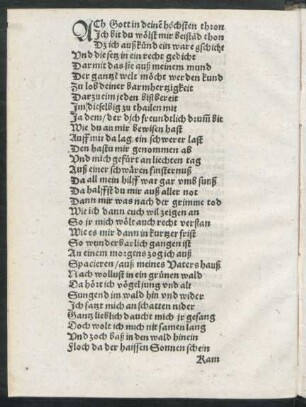 ACh Gott in deinē höchsten thron
Jch bit du wölst mir beistād thon
Dz ich außkünd ein ware gschicht
Vnd die setz in ein recht gedicht
Darmit das sie auß meinem mund
Der gantzē welt möcht werden kund
Zu lob deiner barmhertzigkeit
Darzu eim jeden bißbereit
Jm dieselbig zu thailen mit
Ja dem / der dich freundtlich drumm bit
Wie du an mir bewisen hast
Auff mir da lag ein schwerer last
Den hastu mir genommen ab
Vnd mich gefürt an liechten tag
Auß einer schwären finsternuß
Da all mein hilff war gar vmb sunst
Da halffst du mir auß aller not
Dann mir was nach der grimme tod
Wie ich dann euch wil zeigen an
So jr mich wölt auch recht verstan
Wie es mir dann in kurtzer frist
So wunderbarlich gangen ist
An einem morgens zog ich auß
Spacieren / auß meines Vaters hauß
Nach wollust in ein grünen wald
Da hört ich vögel jung vnd alt
Sungend im wald hin vnd wider
Jch satzt mich an schatten nider
Gantz lieblich daucht mich jr gesang
Doch wolt ich mich nit samen lang
Vnd zoch baß in den wald hinein
Floch da der haissen Sonnen schein
Kam